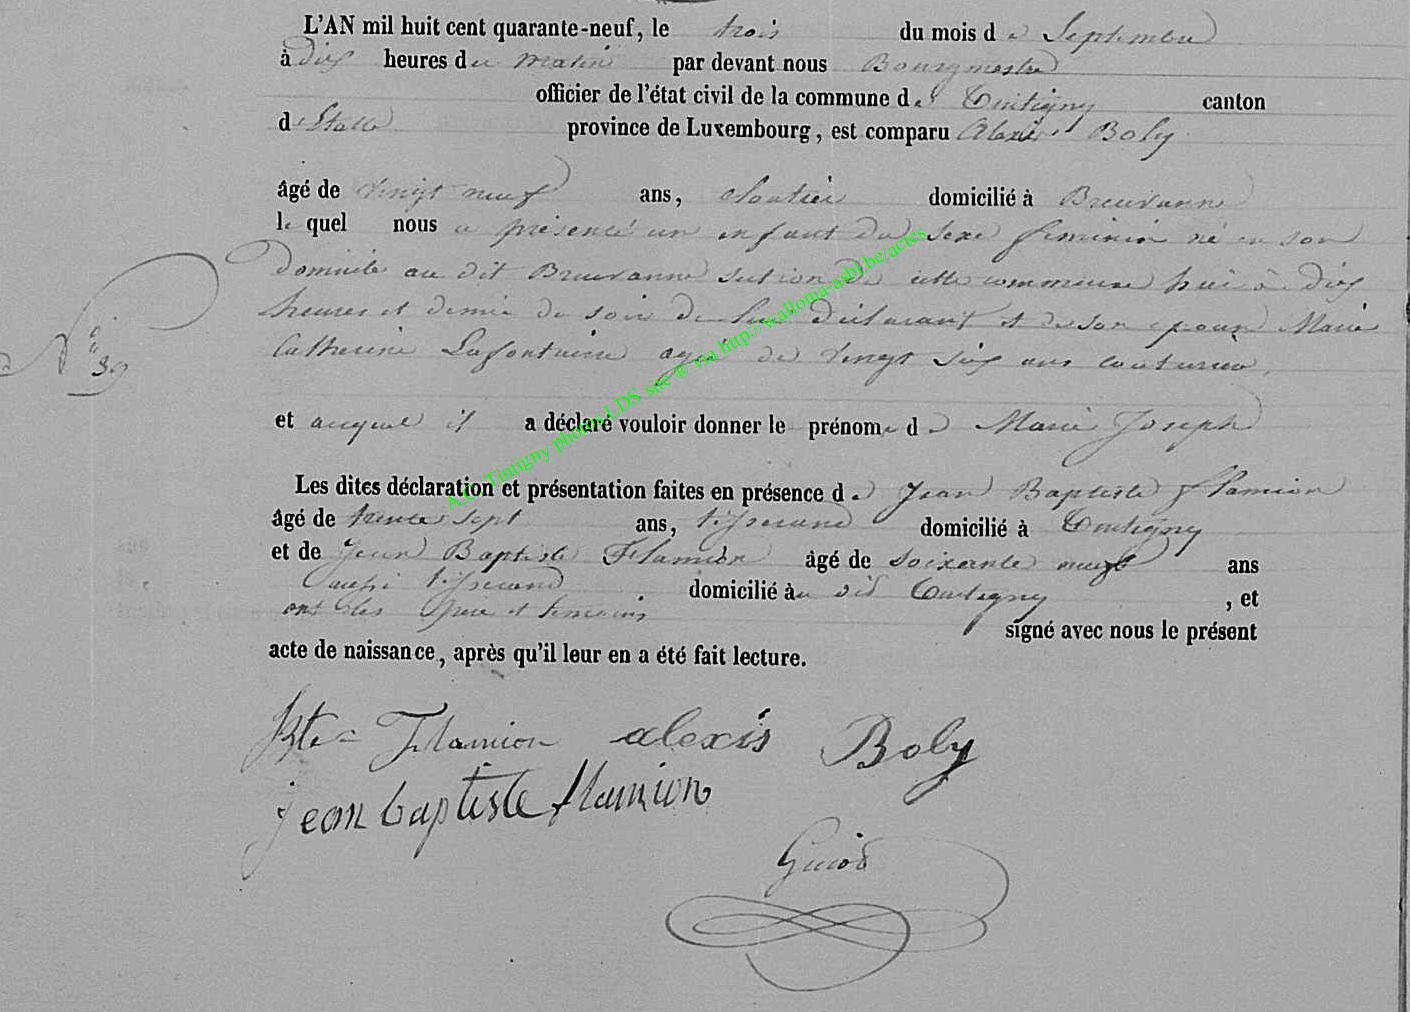 L'AN mil huit cent quarante-neuf, le trois du mois de Septembre
à dix heures du matin par devant nous Bourgmestre
officier de l'état civil de la commune de Tintigny canton
d'Etalle province de Luxembourg, est comparu Alexis Boly
âgé de vingt neuf ans, cloutier domicilié à Breuvanne
le quel nous a présenté un enfant du sexe féminin né en son
domicile au dit Breuvanne section de cette commune hui à dix
heures et demie du soir de lui déclarant et de son épouse Marie
N° 39
Catherine Lafontaine agée de vingt six ans couturière,
et auquel il a déclaré vouloir donner le prénom de Marie Joseph
Les dites déclaration et présentation faites en présence de Jean Baptiste Flamion
âgé de trente sept ans, tisserand domicilié à Tintigny
et de Jean Baptiste Flamion âgé de soixante neuf ans
aussi tisserand domicilié au dit Tintigny, et
ont les père et témoins signé avec nous le présent
acte de naissance, après qu'il leur en a été fait lecture.
Bte Flamion alexis Boly
jean baptiste flamion
A.C. Tintigny photos LDS site ® via http://walloma-asbl.be/actes